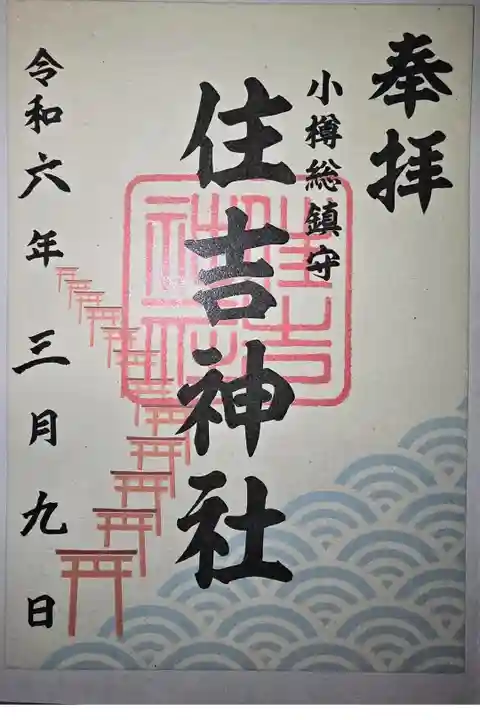 奉拝
小樽総鎮守
住吉神社
住吉神社
令和六年 三月九日